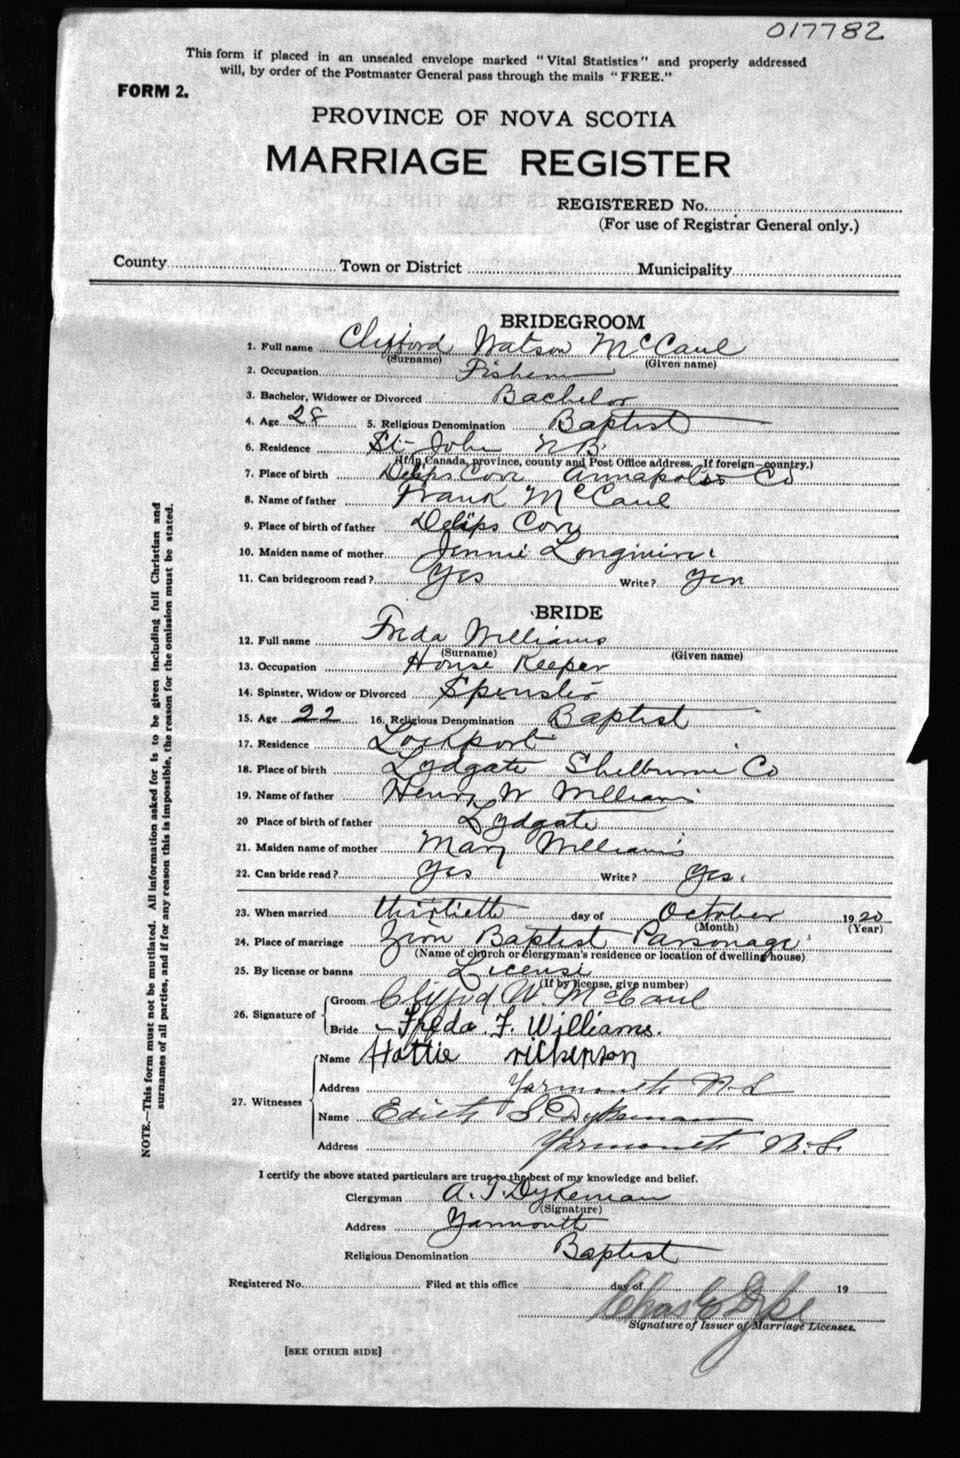 017782
This form if placed in an unsealed envelope marked "Vital Statistics" and properly addressed
will, by order of the Postmaster General pass through the mails "FREE."
FORM 2.
PROVINCE OF NOVA SCOTIA
MARRIAGE REGISTER
REGISTERED No.
(For use of Registrar General only.)
County Town or District Municipality
BRIDEGROOM
1. Full name Clifford Watson McCaul
(Surname) (Given name)
2. Occupation
3. Bachelor, Widower or Divorced Bachelor
4. Age 28 5. Religious Denomination Baptist
6. Residence St-John N B
(If in Canada, province, county and Post Office address. If foreign—country.)
7. Place of birth Delips Cove Annapolis Co
8. Name of father Frank McCaul
9. Place of birth of father Delips Cove
10. Maiden name of mother Jennie
11. Can bridegroom read? Yes Write? Yes
BRIDE
12. Full name Freda Williams
(Surname) (Given name)
13. Occupation House Keeper
14. Spinster, Widow or Divorced Spinster
15. Age 22 16. Religious Denomination Baptist
17. Residence Lockport
18. Place of birth Lydgate Shelburne Co
19. Name of father Henry W Williams
20 Place of birth of father Lydgate
21. Maiden name of mother Mary Williams
22. Can bride read? Yes Write? Yes.
23. When married thirtieth day of October 1920
(Month) (Year)
24. Place of marriage Zion Baptist Parsonage
(Name of church or clergyman's residence or location of dwelling house)
25. By license or banns License
(If by license, give number)
26. Signature of Groom Clifford W. McCaul
Bride Freda F. Williams.
27. Witnesses Name Hattie Nickerson
Address Yarmouth N-S
Name Edith S. Dykeman
Address Yarmouth N.S.
I certify the above stated particulars are true to the best of my knowledge and belief.
Clergyman A. J. Dykeman
(Signature)
Address Yarmouth
Religious Denomination Baptist
Registered No. Filed at this office day of 19
Chas
Signature of Issuer of Marriage Licenses.
[SEE OTHER SIDE]
NOTE.—This form must not be mutilated. All information asked for is to be given including full Christian and
surnames of all parties, and if for any reason this is impossible, the reason for the omission must be stated.